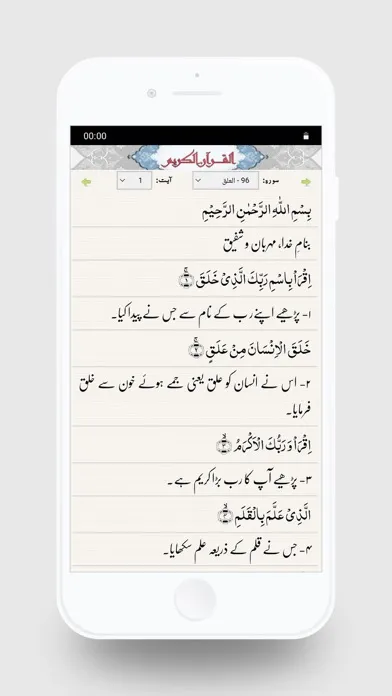 00:00
القرآن الکریم
سورہ: 96 - العلق آیت: 1
بِسْمِ اللّٰهِ الرَّحْمٰنِ الرَّحِیْمِ
بنام خدا، مہربان و شفیق
اِقْرَاْ بِاسْمِ رَبِّكَ الَّذِیْ خَلَقَ ۟ۚ۱
۱- پڑھیے اپنے رب کے نام سے جس نے پیدا کیا۔
خَلَقَ الْاِنْسَانَ مِنْ عَلَقٍ ۟ۚ۲
۲- اس نے انسان کو علق یعنی جمے ہوئے خون سے خلق
فرمایا۔
اِقْرَاْ وَرَبُّكَ الْاَكْرَمُ ۟ۙ۳
۳- پڑھیے آپ کا رب بڑا کریم ہے۔
الَّذِیْ عَلَّمَ بِالْقَلَمِ ۟ۙ۴
۴- جس نے قلم کے ذریعہ علم سکھایا۔